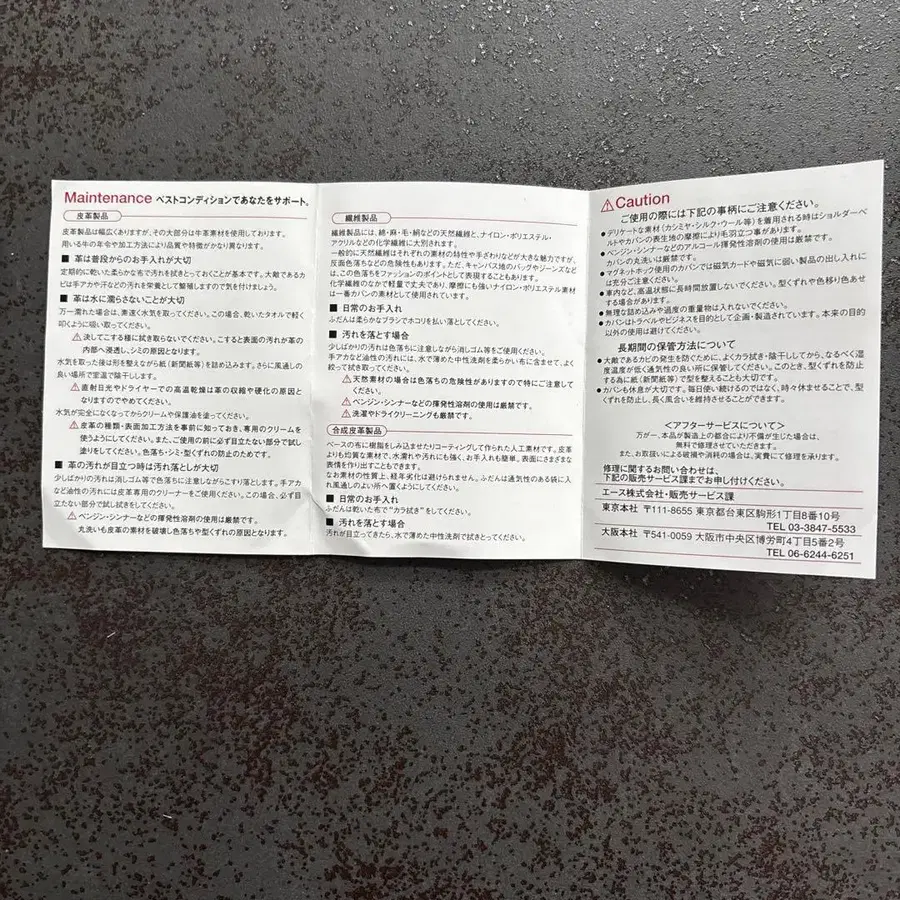 Maintenance ベストコンディションであなたをサポート。
皮革製品
皮革製品は幅広くありますが、その大部分は牛革素材を使用しております。
用いる牛の年令や加工方法により品質や特徴がかなり異なります。
■ 革は普段からのお手入れが大切
定期的に乾いた柔らかな布で汚れを拭きとっておくことが基本です。大敵であるカ
ビは手アカや汗などの汚れを栄養として繁殖しますので気を付けましょう。
■ 革は水に濡らさないことが大切
万一濡れた場合は、素速く水気を取ってください。この場合、乾いたタオルで軽く
叩くように吸い取ってください。
⚠決してこする様に拭き取らないでください。こすると表面の汚れが革の
内部へ浸透し、シミの原因となります。
水気を取った後は形を整えながら紙(新聞紙等)を詰めます。さらに風通しの
良い場所で室温で陰干しします。
⚠直射日光やドライヤーでの高温乾燥は革の収縮や硬化の原因と
なりますのでやめてください。
水気が完全になくなってからクリームや保護油を塗ってください。
⚠皮革の種類・表面加工方法を事前に知っておき、専用のクリームを
使うようにしてください。また、ご使用の前に必ず目立たない部分で試し
塗りをしてください。色落ち・シミ・型くずれの防止のためです。
■ 革の汚れが目立つ時は汚れ落としが大切
少しばかりの汚れは消しゴム等で色落ちに注意しながらこすり落とします。手アカ
など油性の汚れには皮革専用のクリーナーをご使用ください。この場合、必ず目
立たない部分で試し拭きをしてください。
⚠ベンジン・シンナーなどの揮発性溶剤の使用は厳禁です。
丸洗いも皮革の素材を破壊し色落ちや型くずれの原因となります。
繊維製品
繊維製品には、綿・麻・毛・絹などの天然繊維と、ナイロン・ポリエステル・
アクリルなどの化学繊維に大別されます。
一般的に天然繊維はそれぞれの素材の特性や手ざわりなどが大きな魅力ですが、
反面色落ちなどの危険性もあります。ただ、キャンバス地のバッグやジーンズなど
は、この色落ちをファッションのポイントとして表現することもあります。
化学繊維のなかで軽量で丈夫であり、摩擦にも強いナイロン・ポリエステル素材
は一番カバンの素材として使用されています。
■ 日常のお手入れ
ふだんは柔らかなブラシでホコリを払い落としてください。
■ 汚れを落とす場合
少しばかりの汚れは色落ちに注意しながら消しゴム等をご使用ください。
手アカなど油性の汚れには、水で薄めた中性洗剤を柔らかい布に含ませて、よく
絞って拭き取ってください。
⚠天然素材の場合は色落ちの危険性がありますので特にご注意して
ください。
⚠ベンジン・シンナーなどの揮発性溶剤の使用は厳禁です。
⚠洗濯やドライクリーニングも厳禁です。
合成皮革製品
ベースの布に樹脂をしみ込ませたりコーティングして作られた人工素材です。皮革
よりも均質な素材で、水濡れや汚れにも強く、お手入れも簡単。表面にさまざまな
表情を作り出すこともできます。
なお素材の性質上、経年劣化は避けられません。ふだんは通気性のある袋に入
れ風通しのよい所へ置くようにしてください。
■ 日常のお手入れ
ふだんは乾いた布で“カラ拭き”をしてください。
■ 汚れを落とす場合
汚れが目立ってきたら、水で薄めた中性洗剤で拭きとってください。
⚠Caution
ご使用の際には下記の事柄にご注意ください。
●デリケートな素材(カシミヤ・シルク・ウール等)を着用される時はショルダーベ
ルトやカバンの表生地の摩擦により毛羽立つ事があります。
●ベンジン・シンナーなどのアルコール揮発性溶剤の使用は厳禁です。
カバンの丸洗いは厳禁です。
●マグネットホック使用のカバンでは磁気カードや磁気に弱い製品の出し入れに
は充分ご注意ください。
●車内など、高温状態に長時間放置しないでください。型くずれや色移り色あせ
する場合があります。
●無理な詰め込みや過度の重量物は入れないでください。
●カバンはトラベルやビジネスを目的として企画・製造されています。本来の目的
以外の使用は避けてください。
長期間の保管方法について
●大敵であるカビの発生を防ぐために、よくカラ拭き・陰干ししてから、なるべく湿
度温度が低く通気性の良い所に保管してください。このとき、型くずれを防止
する為に紙(新聞紙等)で型を整えることも大切です。
●カバンも休息が大切です。毎日使い続けるのではなく、時々休ませることで、型
くずれを防止し、長く風合いを維持させることができます。
＜アフターサービスについて＞
万が一、本品が製造上の都合により不備が生じた場合は、
無料で修理させていただきます。
また、お取扱いによる破損や消耗の場合は、実費にて修理を承ります。
修理に関するお問い合わせは、
下記の販売サービス課までお申し付けください。
エース株式会社・販売サービス課
東京本社 〒111-8655 東京都台東区駒形1丁目8番10号
TEL 03-3847-5533
大阪本社 〒541-0059 大阪市中央区博労町4丁目5番2号
TEL 06-6244-6251